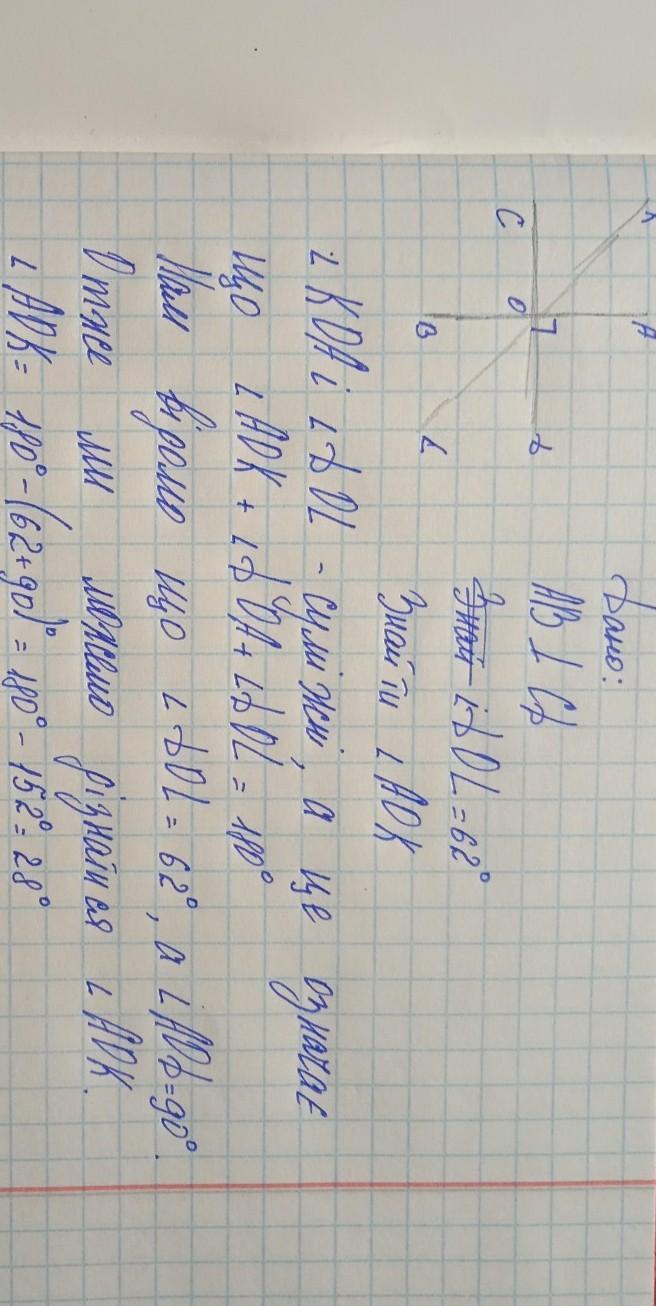 К
A
C
O
D
B
L
Дано:
AB ⊥ CD
Знай ∠DOL = 62°
Знайти ∠AOK
∠KOA і ∠DOL - суміжні, а це означає
що ∠AOK + ∠DOA + ∠DOL = 180°
Нам відомо що ∠DOL = 62°, а ∠AOD = 90°.
Отже ми можемо дізнатися ∠AOK.
∠AOK = 180° - (62+90)° = 180° - 152° = 28°